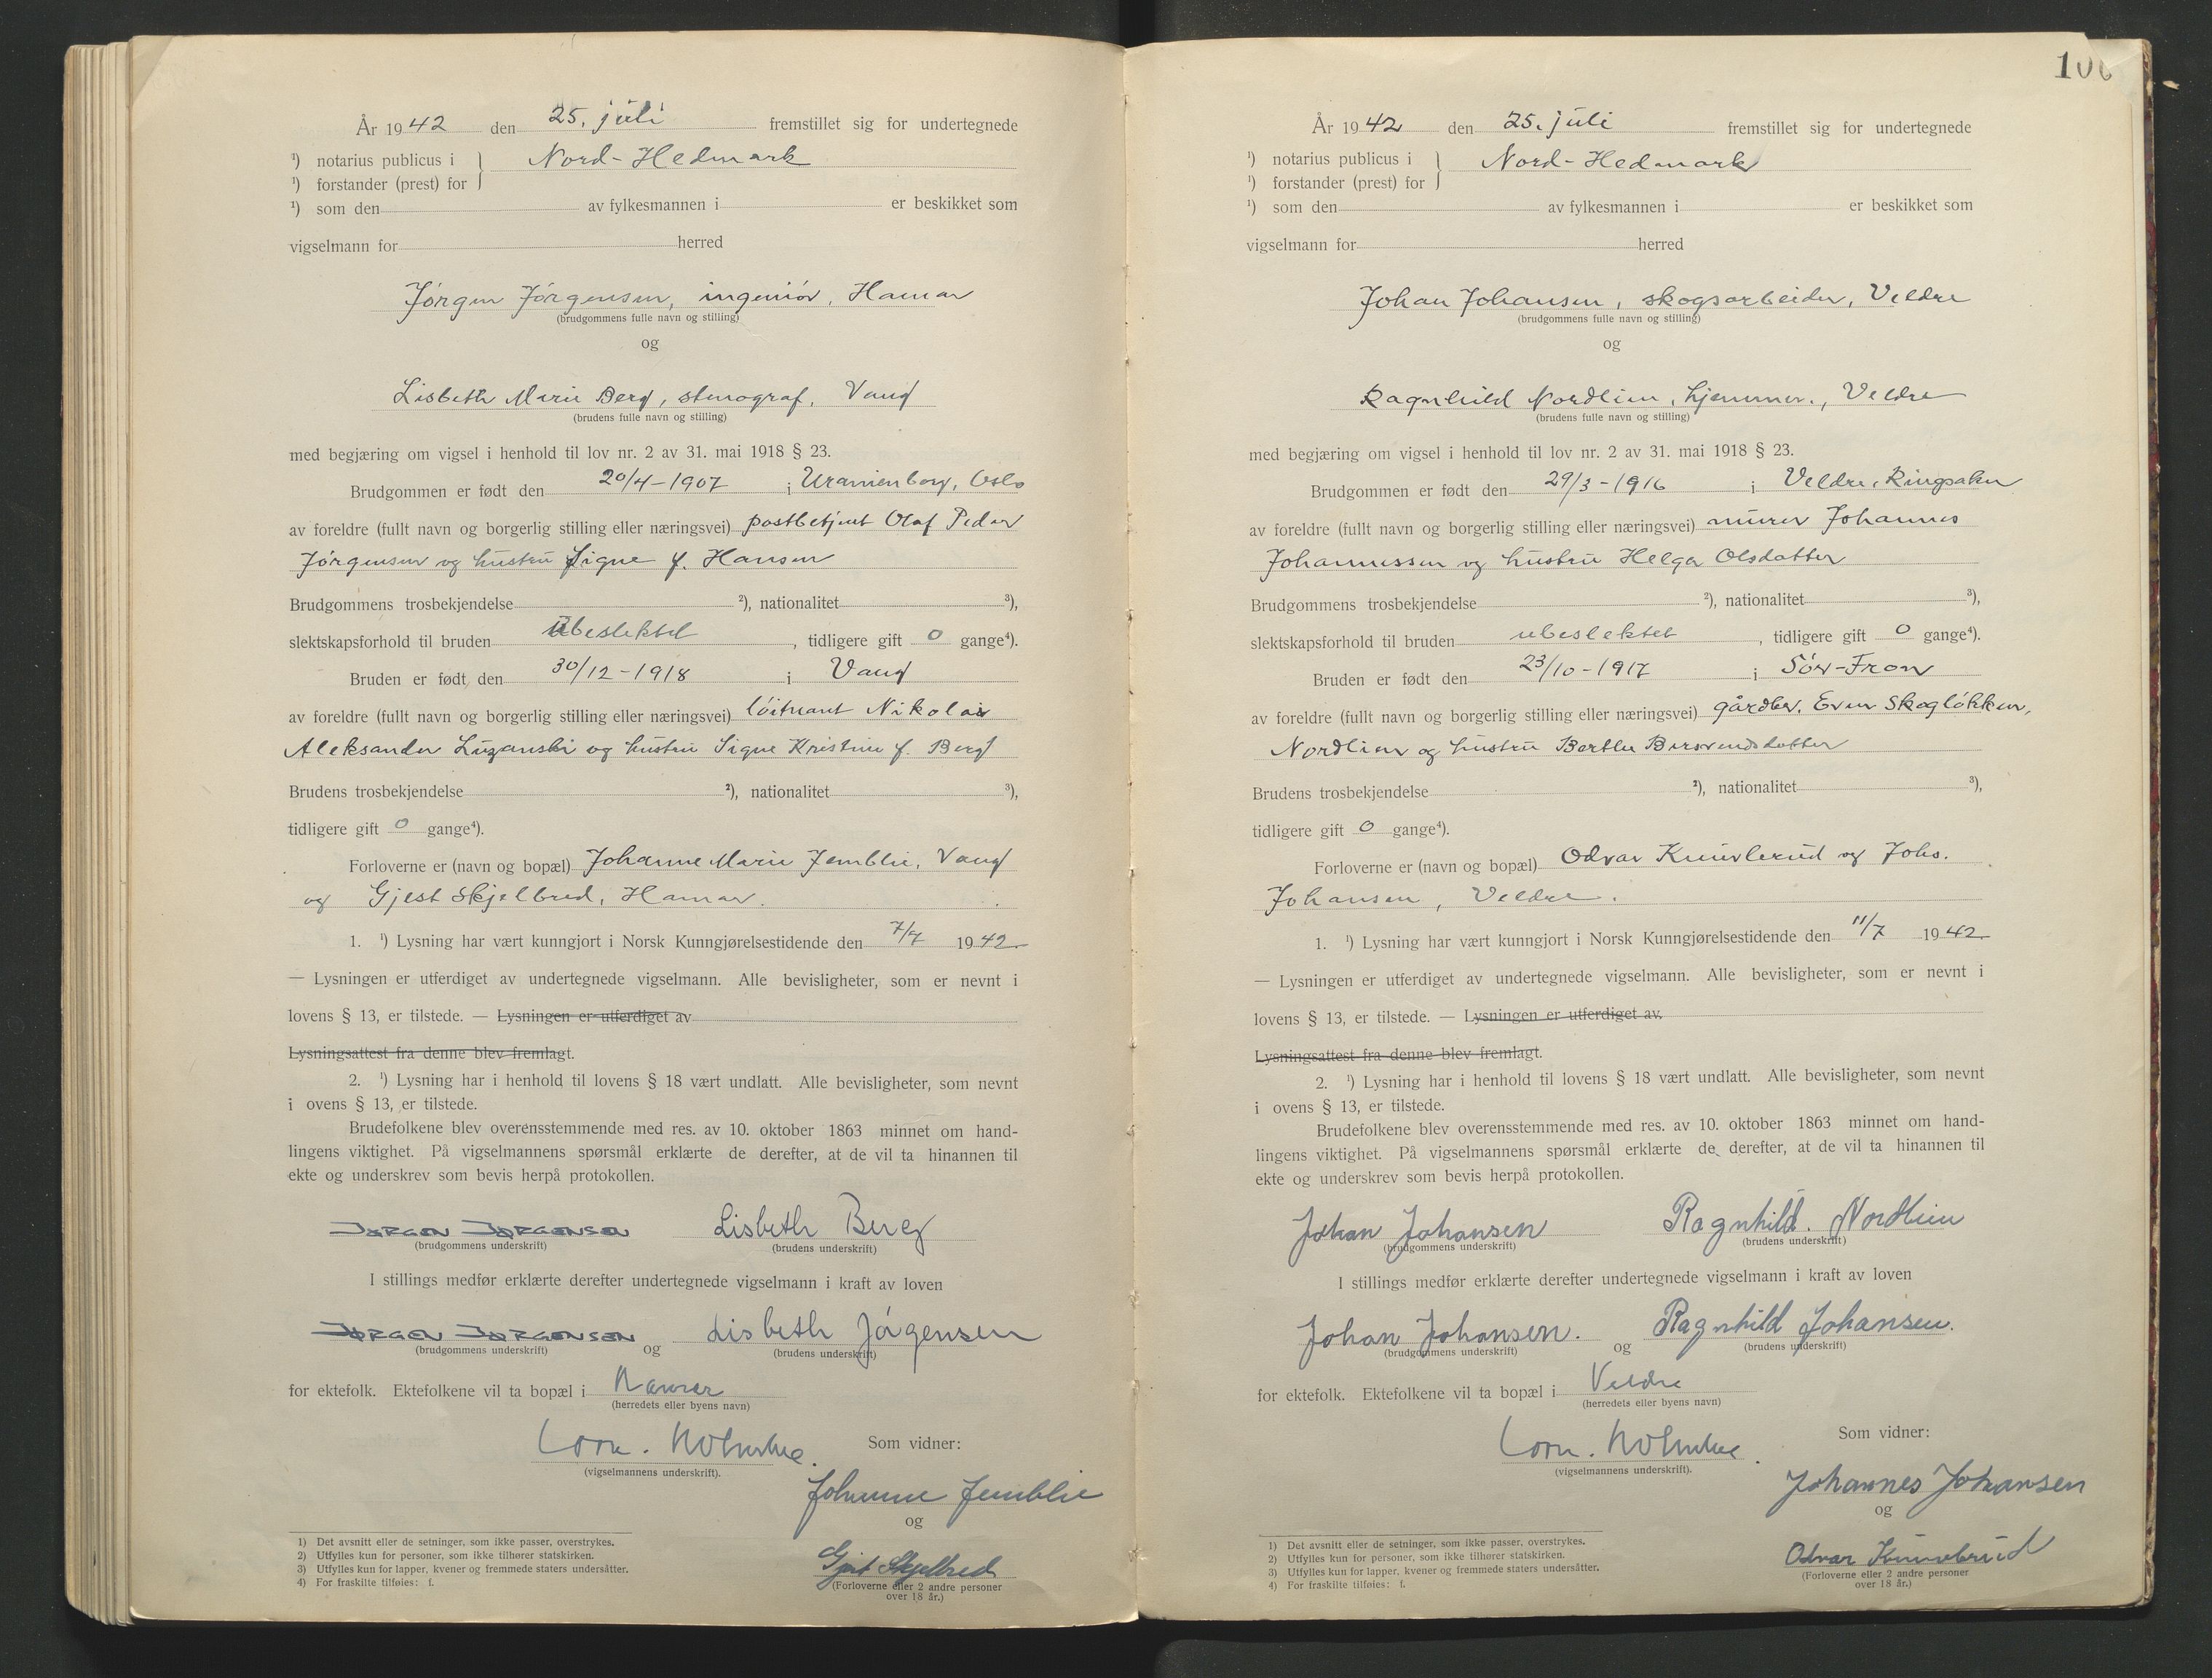 År 1942 den 25. juli fremstillet sig for undertegnede
¹) notarius publicus i } Nord-Hedmark
¹) forstander (prest) for
¹) som den av fylkesmannen i er beskikket som
vigselmann for herred
Jørgen Jørgensen, ingeniør, Hamar
(brudgommens fulle navn og stilling)
og
Lisbeth Marie Berg, stenograf, Vang
(brudens fulle navn og stilling)
med begjæring om vigsel i henhold til lov nr. 2 av 31. mai 1918 § 23.
Brudgommen er født den 20/4-1907 i Uranienborg, Oslo
av foreldre (fullt navn og borgerlig stilling eller næringsvei) postbetjent Olaf Peder
Jørgensen og hustru Signe f. Hansen
Brudgommens trosbekjendelse ²), nationalitet ³),
slektskapsforhold til bruden Ubeslektet, tidligere gift 0 gange⁴).
Bruden er født den 30/12-1918 i Vang
av foreldre (fullt navn og borgerlig stilling eller næringsvei) löitnant Nikolai
Aleksander Luzanski og hustru Signe Kristine f. Berg
Brudens trosbekjendelse ²), nationalitet ³),
tidligere gift 0 gange⁴).
Forloverne er (navn og bopæl) Johanne Marie Jemblie, Vang
og Gjest Skjelbred, Hamar.
1. ¹) Lysning har vært kunngjort i Norsk Kunngjørelsestidende den 7/7 1942
— Lysningen er utferdiget av undertegnede vigselmann. Alle bevisligheter, som er nevnt i
lovens § 13, er tilstede. — Lysningen er utferdiget av
Lysningsattest fra denne blev fremlagt.
2. ¹) Lysning har i henhold til lovens § 18 vært undlatt. Alle bevisligheter, som nevnt
i ovens § 13, er tilstede.
Brudefolkene blev overensstemmende med res. av 10. oktober 1863 minnet om hand-
lingens viktighet. På vigselmannens spørsmål erklærte de derefter, at de vil ta hinannen til
ekte og underskrev som bevis herpå protokollen.
JØRGEN JØRGENSEN Lisbeth Berg
(brudgommens underskrift) (brudens underskrift)
I stillings medfør erklærte derefter undertegnede vigselmann i kraft av loven
JØRGEN JØRGENSEN og Lisbeth Jørgensen
(brudgommens underskrift) (brudens underskrift)
for ektefolk. Ektefolkene vil ta bopæl i Hamar
(herredets eller byens navn)
Som vidner:
(vigselmannens underskrift).
Johanne Jemblie
og
Gjest Skjelbred
(Forloverne eller 2 andre personer
over 18 år.)
1) Det avsnitt eller de setninger, som ikke passer, overstrykes.
2) Utfylles kun for personer, som ikke tilhører statskirken.
3) Utfylles kun for lapper, kvener og fremmede staters undersåtter.
4) For fraskilte tilføies: f.
100
År 1942 den 25. juli fremstillet sig for undertegnede
¹) notarius publicus i } Nord-Hedmark
¹) forstander (prest) for
¹) som den av fylkesmannen i er beskikket som
vigselmann for herred
Johan Johansen, skogsarbeider, Veldre
(brudgommens fulle navn og stilling)
og
Ragnhild Nordlien, hjemmev., Veldre
(brudens fulle navn og stilling)
med begjæring om vigsel i henhold til lov nr. 2 av 31. mai 1918 § 23.
Brudgommen er født den 29/3-1916 i Veldre, Ringsaker
av foreldre (fullt navn og borgerlig stilling eller næringsvei) murer Johannes
Johannessen og hustru Helga Olsdatter
Brudgommens trosbekjendelse ²), nationalitet ³),
slektskapsforhold til bruden ubeslektet, tidligere gift 0 gange⁴).
Bruden er født den 23/10-1917 i Sör-Fron
av foreldre (fullt navn og borgerlig stilling eller næringsvei) gårdbr. Even Skogløkken,
Nordlien og hustru Berthe
Brudens trosbekjendelse ²), nationalitet ³),
tidligere gift 0 gange⁴).
Forloverne er (navn og bopæl) Odvar og Johs.
Johansen, Veldre.
1. ¹) Lysning har vært kunngjort i Norsk Kunngjørelsestidende den 11/7 1942
— Lysningen er utferdiget av undertegnede vigselmann. Alle bevisligheter, som er nevnt i
lovens § 13, er tilstede. — Lysningen er utferdiget av.
Lysningsattest fra denne blev fremlagt.
2. ¹) Lysning har i henhold til lovens § 18 vært undlatt. Alle bevisligheter, som nevnt
i ovens § 13, er tilstede.
Brudefolkene blev overensstemmende med res. av 10. oktober 1863 minnet om hand-
lingens viktighet. På vigselmannens spørsmål erklærte de derefter, at de vil ta hinannen til
ekte og underskrev som bevis herpå protokollen.
Johan Johansen Ragnhild. Nordlien
(brudgommens underskrift) (brudens underskrift)
I stillings medfør erklærte derefter undertegnede vigselmann i kraft av loven
Johan Johansen. og Ragnhild Johansen.
(brudgommens underskrift) (brudens underskrift)
for ektefolk. Ektefolkene vil ta bopæl i Veldre
(herredets eller byens navn)
Som vidner:
(vigselmannens underskrift).
Johannes Johansen
og
Odvar
(Forloverne eller 2 andre personer
over 18 år.)
1) Det avsnitt eller de setninger, som ikke passer, overstrykes.
2) Utfylles kun for personer, som ikke tilhører statskirken.
3) Utfylles kun for lapper, kvener og fremmede staters undersåtter.
4) For fraskilte tilføies: f.